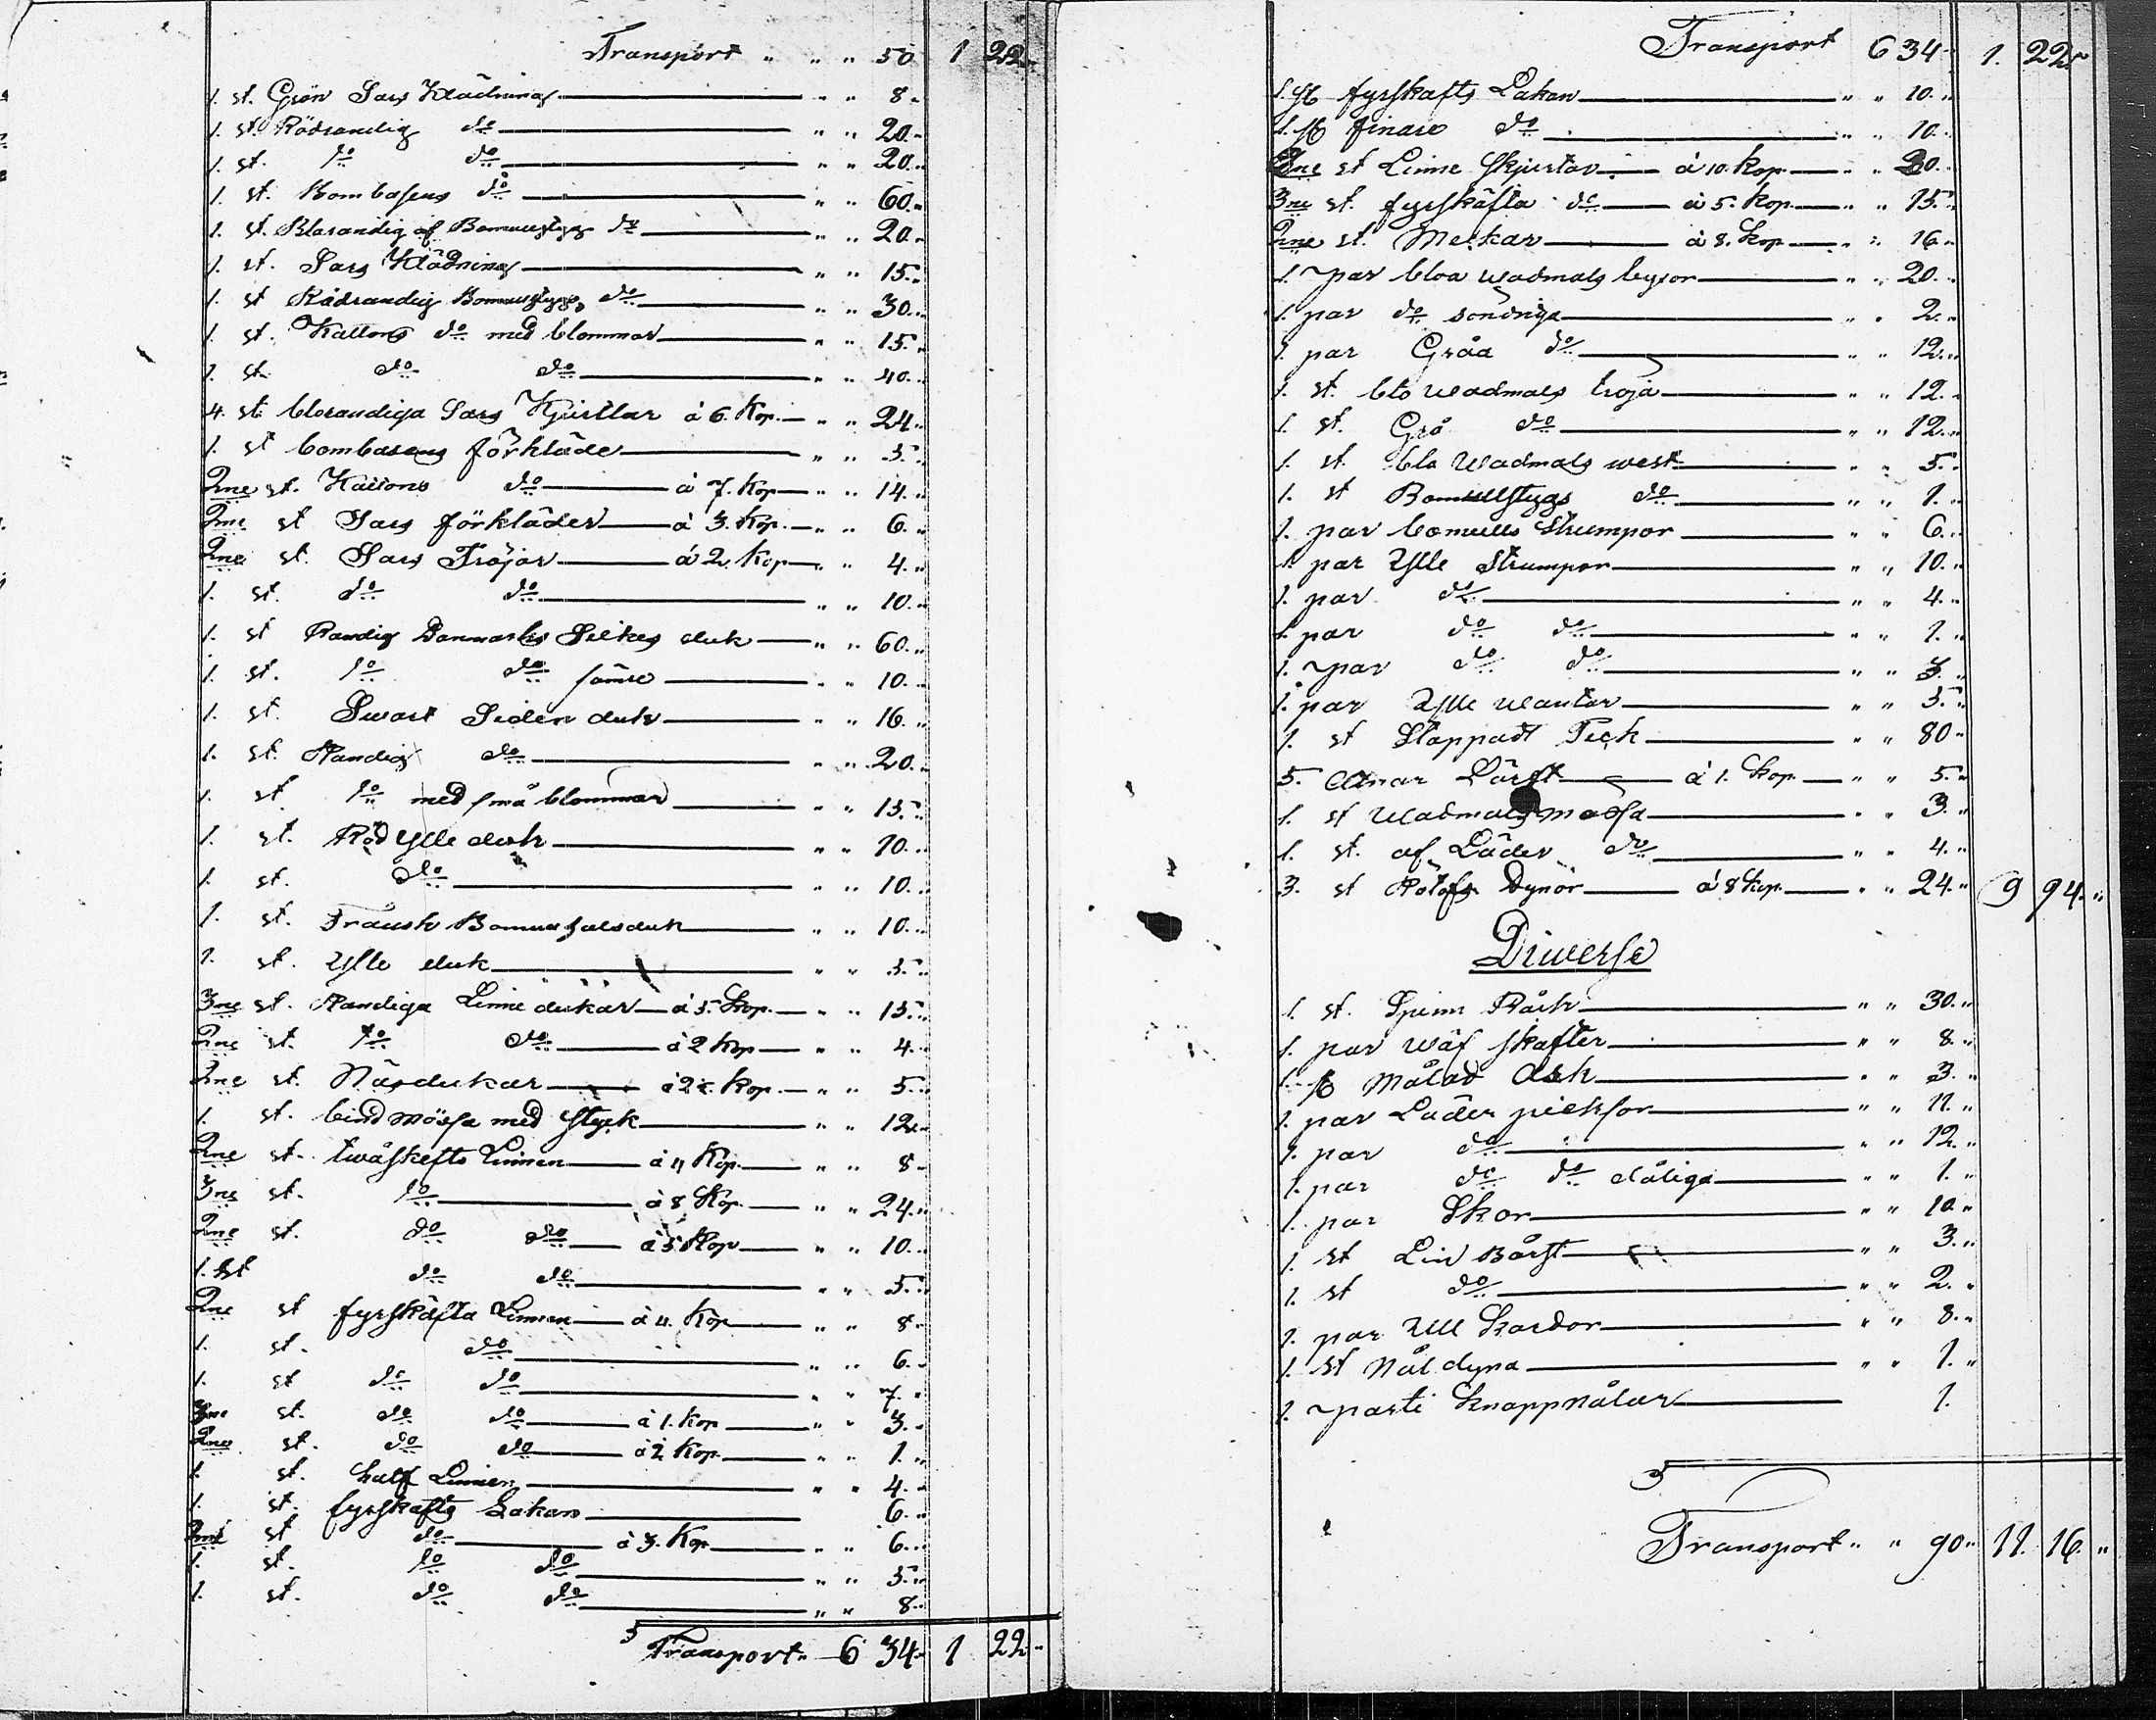 Transport " " " 50 1 22 "
1. st. Grön Sars Klädning " " 8 "
1. st. Rödrandig do " " 20 "
1. st. do do " " 20 "
1. st. Bombasens do " " 60 "
1. st. Blårandig af Bomullstyg do " " 20 "
1. st. Sars Klädning " " 15 "
1. st Rödrandig Bomullstygs do " " 30 "
1. st. Kattons do med blommor " " 15 "
1. st. do do " " 40 "
4. st. blorandiga Sars Kjortlar à 6. Kop. " " 24 "
1. st bombasens förkläde " " 5 "
2ne st. Kattons do à 7. Kop " " 14 "
2ne st Sars förkläder à 3. Kop. " " 6 "
2ne st. Sars Tröjor à 2. Kop " " 4 "
1. st. do do " " 10 "
1. st Randig Danmarks Silkes duk " " 60 "
1. st. do do sämre " " 10 "
1. st. Swart Siden duk " " 16 "
1. st. Randig do " " 20 "
1. st do med små blommor " " 15 "
1. st. Röd Ylle duk " " 10 "
1. st. do " " 10 "
1. st. Fransk Bomuls halsduk " " 10 "
1. st. Ylle duk " " 5 "
3ne st. Randiga Linne dukar à 5. Kop. " " 15 "
2ne st. do do à 2 Kop " " 4 "
2ne st. Näsdukar Kop. " " 5 "
1. st. bindmössa med Styck " " 12 "
2ne st. twåskefts Linnen à 4 Kop. " " 8 "
3ne st. do à 8 Kop. " " 24 "
2ne st. do do à 5 Kop " " 10 "
1. st do do " " 5 "
2ne st fyrskäfta Linnen à 4. Kop " " 8 "
1. st. do " " 6 "
1. st do do " " 7 "
3ne st. do do à 1. Kop " " 3 "
2ne st. do do Kop. " " 1 "
1. st. half Linnen " " 4 "
1. st. fyrskafts Lakan 6 "
2ne st do à 3. Kop " " 6 "
1. st. do do " " 5 "
1. st. do do " " 8 "
Transport " 6 34 " 1 22 "
Transport 6 34 " 1. 22 "
1. st fyrskafts Lakan " " 10 "
1. st finare do " " 10 "
3ne st Linne Skjortor à 10. Kop " " 30 "
3ne st. fyrskäfta do à 5. Kop. " " 15 "
2ne st. Merkar à 8. Kop " " 16 "
1. par bloa wadmals byxor " " 20 "
1. par do söndriga " " 2 "
1. par Gråa do " " 12 "
1. st. blo wadmals troja " " 12 "
1. st. Grå do " " 12 "
1. st. bla Wadmals west " " 5 "
1. st Bomullstygs do " " 1 "
1. par bomulls Strumpor " " 6 "
1. par Ylle Strumpor " " 10 "
1. par do " " 4 "
1. par do do " " 1 "
1. par do do " " 3 "
1. par Ylle wantar " " 5 "
1. st Stoppadt Teck " " 80 "
5. Alnar Lärft à 1. Kop " " 5 "
1. st Wadmals mössa " " 3 "
1. st. af Läder do " " 4 "
3. st Dynor à 8 Kop. " " 24 " 9 94 "
Diwerse
1. st. Spinn Råck " " 30 "
1. par wäf skafter " " 8 "
1. st målad Ask " " 3 "
1. par Läder pieksor " " 11 "
1. par do " " 12 "
1. par do do dåliga " " 1 "
1. par Skor " " 10 "
1. st Lin Bårst " " 3 "
1. st do " " 2 "
1. par Ull Kardor " " 8 "
1. st Nål dyna " " 1 "
1. parti Knappnålar 1.
Transport " " 90 " 11. 16 "